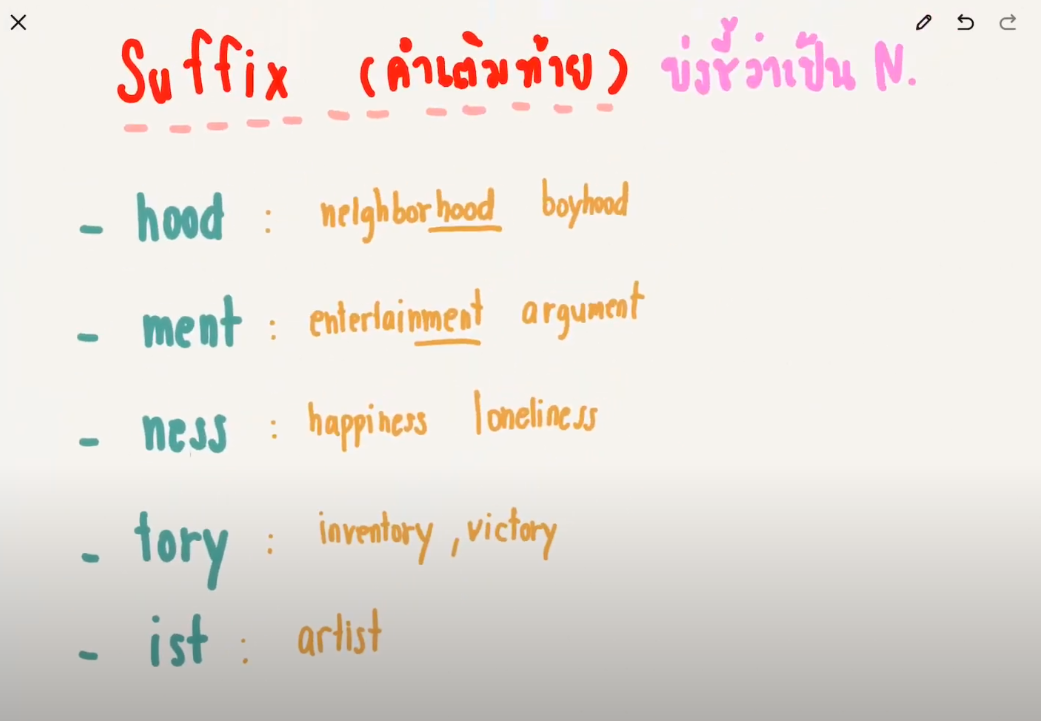 Suffix (คำเติมท้าย) บ่งชี้ว่าเป็น N.
- hood : neighborhood boyhood
- ment : entertainment argument
- ness : happiness loneliness
- tory : inventory , victory
- ist : artist